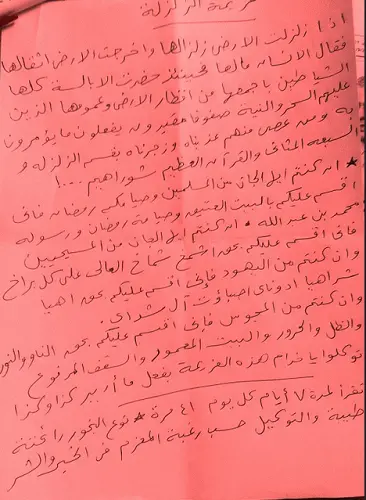 عزيمة الزلزلة
اذا زلزلت الارض زلزالها واخرجت الارض اثقالها
فقال الانسان مالها فحينئذ حضرت الابالسة كلها
الشياطين باجمعها من اقطار الارض وعمومها الذين
عليهم السحر والنية صفوفا مقهورين يفعلون ما يؤمرون
به ومن عصى منهم عذبناه وزجرناه بقسم الزلزله و
السبعه المثاني والقرآن العظيم شوراهيم ...!
* ان كنتم ايها الجان من المسلمين وصيامكم رمضان فاني
اقسم عليكم بالبيت العتيق وصيامة رمضان ورسوله
محمد بن عبد الله * ان كنتم ايها الجان من المسيحيين
فاني اقسم عليكم بحق اشمخ شماخ العالي على كل براخ
وان كنتم من اليهود فإني اقسم عليكم بحق اهيا
شراهيا ادوناي اصباؤت آل شداي.
وان كنتم من المجوس فإني اقسم عليكم بحق النار والنور
والظل والحرور والبيت المعمور والسقف المرفوع
توكلوا يا خدام هذه العزيمة بفعل ما أريد كذا وكذا
تقرأ لمدة ٧ أيام كل يوم ٤١ مرة * نوع البخور رائحة
طيبة والتوكيل حسب رغبة المعزم من الخير والشر